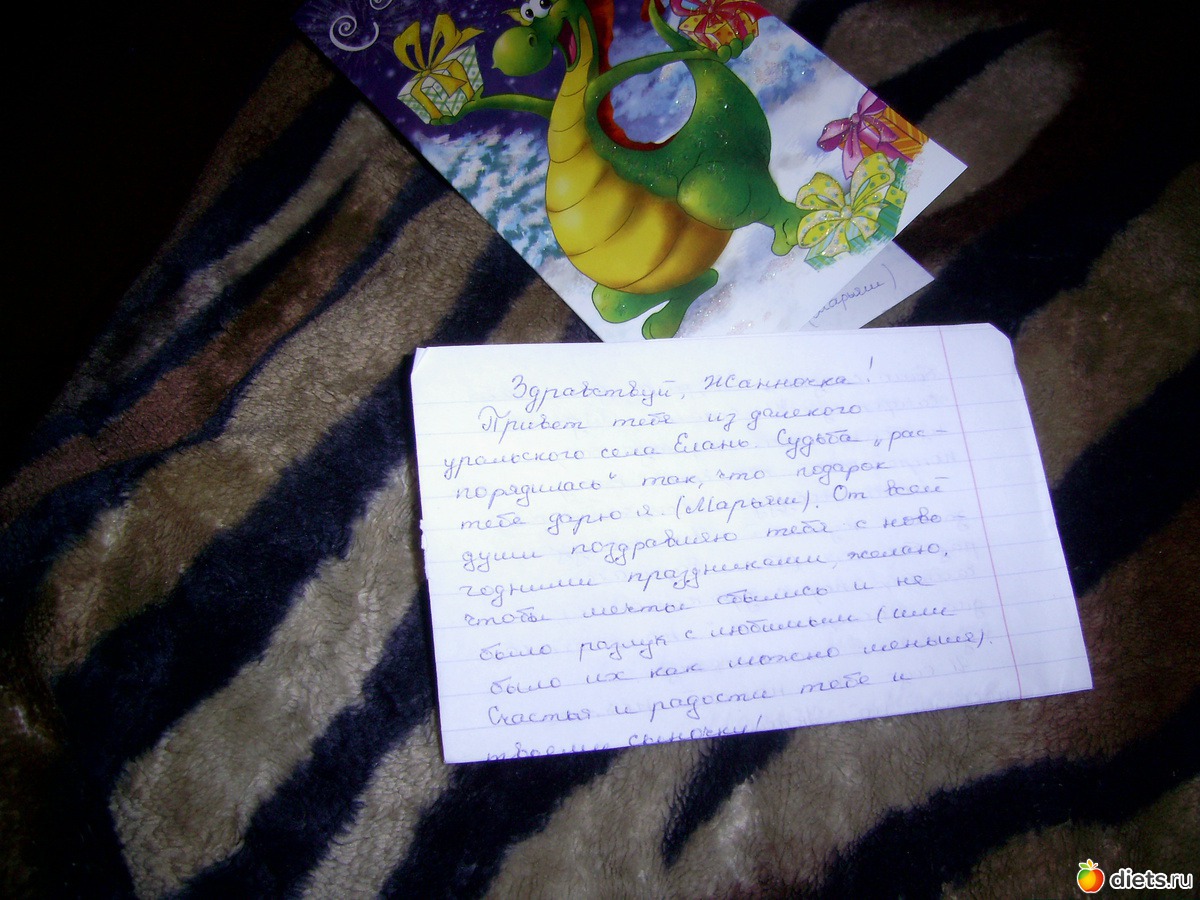 (марьяши)
Здравствуй, Жанночка!
Привет тебе из далекого
уральского села Елань. Судьба „рас-
порядилась“ так, что подарок
тебе дарю я (Марьяши). От всей
души поздравляю тебя с ново-
годними праздниками, желаю,
чтобы мечты сбылись и не
было разлук с любимым (или
было их как можно меньше).
Счастья и радости тебе и
твоему сыночку!
diets.ru